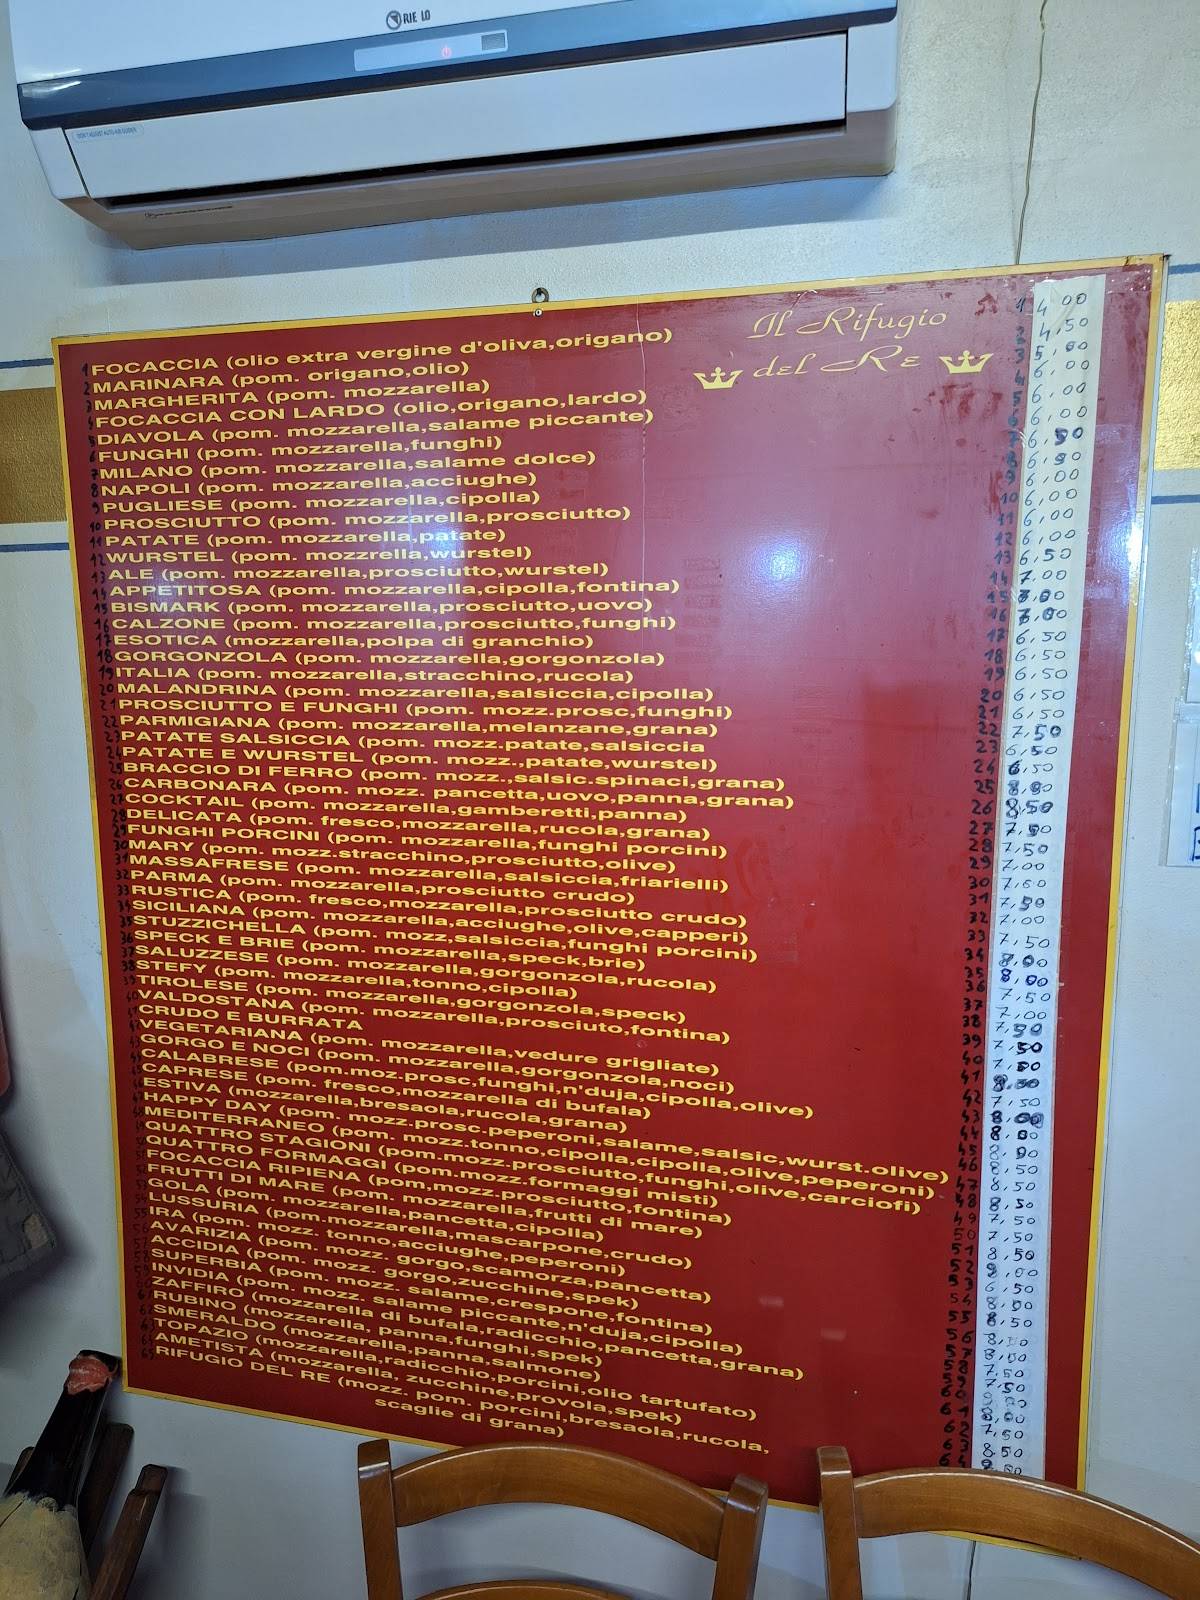 RIE LO
DON'T ADJUST AUTO-AIR GUIDER
Il Rifugio
del Re
1 FOCACCIA (olio extra vergine d'oliva,origano)
2 MARINARA (pom. origano,olio)
3 MARGHERITA (pom. mozzarella)
4 FOCACCIA CON LARDO (olio,origano,lardo)
5 DIAVOLA (pom. mozzarella,salame piccante)
6 FUNGHI (pom. mozzarella,funghi)
7 MILANO (pom. mozzarella,salame dolce)
8 NAPOLI (pom. mozzarella,acciughe)
9 PUGLIESE (pom. mozzarella,cipolla)
10 PROSCIUTTO (pom. mozzarella,prosciutto)
11 PATATE (pom. mozzarella,patate)
12 WURSTEL (pom. mozzrella,wurstel)
13 ALE (pom. mozzarella,prosciutto,wurstel)
14 APPETITOSA (pom. mozzarella,cipolla,fontina)
15 BISMARK (pom. mozzarella,prosciutto,uovo)
16 CALZONE (pom. mozzarella,prosciutto,funghi)
17 ESOTICA (mozzarella,polpa di granchio)
18 GORGONZOLA (pom. mozzarella,gorgonzola)
19 ITALIA (pom. mozzarella,stracchino,rucola)
20 MALANDRINA (pom. mozzarella,salsiccia,cipolla)
21 PROSCIUTTO E FUNGHI (pom. mozz.prosc,funghi)
22 PARMIGIANA (pom. mozzarella,melanzane,grana)
23 PATATE SALSICCIA (pom. mozz.patate,salsiccia
24 PATATE E WURSTEL (pom. mozz.,patate,wurstel)
25 BRACCIO DI FERRO (pom. mozz.,salsic.spinaci,grana)
26 CARBONARA (pom. mozz. pancetta,uovo,panna,grana)
27 COCKTAIL (pom. mozzarella,gamberetti,panna)
28 DELICATA (pom. fresco,mozzarella,rucola,grana)
29 FUNGHI PORCINI (pom. mozzarella,funghi porcini)
30 MARY (pom. mozz.stracchino,prosciutto,olive)
31 MASSAFRESE (pom. mozzarella,salsiccia,friarielli)
32 PARMA (pom. mozzarella,prosciutto crudo)
33 RUSTICA (pom. fresco,mozzarella,prosciutto crudo)
34 SICILIANA (pom. mozzarella,acciughe,olive,capperi)
35 STUZZICHELLA (pom. mozz,salsiccia,funghi porcini)
36 SPECK E BRIE (pom. mozzarella,speck,brie)
37 SALUZZESE (pom. mozzarella,gorgonzola,rucola)
38 STEFY (pom. mozzarella,tonno,cipolla)
39 TIROLESE (pom. mozzarella,gorgonzola,speck)
40 VALDOSTANA (pom. mozzarella,prosciuto,fontina)
41 CRUDO E BURRATA
42 VEGETARIANA (pom. mozzarella,vedure grigliate)
43 GORGO E NOCI (pom. mozzarella,gorgonzola,noci)
CALABRESE (pom.moz.prosc,funghi,n'duja,cipolla,olive)
CAPRESE (pom. fresco,mozzarella di bufala)
ESTIVA (mozzarella,bresaola,rucola,grana)
HAPPY DAY (pom. mozz.prosc.peperoni,salame,salsic,wurst.olive)
MEDITERRANEO (pom. mozz.tonno,cipolla,cipolla,olive,peperoni)
QUATTRO STAGIONI (pom.mozz.prosciutto,funghi,olive,carciofi)
QUATTRO FORMAGGI (pom.mozz.formaggi misti)
FOCACCIA RIPIENA (pom,mozz.prosciutto,fontina)
FRUTTI DI MARE (pom. mozzarella,frutti di mare)
GOLA (pom. mozzarella,pancetta,cipolla)
LUSSURIA (pom.mozzarella,mascarpone,crudo)
IRA (pom. mozz. tonno,acciughe,peperoni)
AVARIZIA (pom. mozz. gorgo,scamorza,pancetta)
ACCIDIA (pom. mozz. gorgo,zucchine,spek)
SUPERBIA (pom. mozz. salame,crespone,fontina)
INVIDIA (pom. mozz. salame piccante,n'duja,cipolla)
ZAFFIRO (mozzarella di bufala,radicchio,pancetta,grana)
RUBINO (mozzarella, panna,funghi,spek)
SMERALDO (mozzarella,panna,salmone)
TOPAZIO (mozzarella,radicchio,porcini,olio tartufato)
AMETISTA (mozzarella, zucchine,provola,spek)
65 RIFUGIO DEL RE (mozz. pom. porcini,bresaola,rucola,
scaglie di grana)
1 4,00
2 4,50
3 5,00
4 6,00
5 6,00
6 6,00
7 6,50
8 6,50
9 6,00
10 6,00
11 6,00
12 6,00
13 6,50
14 7,00
15
16 7,00
17 6,50
18 6,50
19 6,50
20 6,50
21 6,50
22 7,50
23 6,50
24 6,50
25 8,00
26 8,50
27 7,50
28 7,50
29 7,00
30 7,00
31 7,50
32 7,00
33 7,50
34 8,00
35 8,00
36 7,50
37 7,00
38 7,50
39 7,50
40 7,50
41
42 7,50
43 8,00
44 8,00
45 8,00
46 8,50
47 8,50
48 8,50
49 7,50
50 7,50
51 8,50
52 9,00
53 6,50
54
55
56
57
58
59
60
61
62 7,50
63 8,50
64